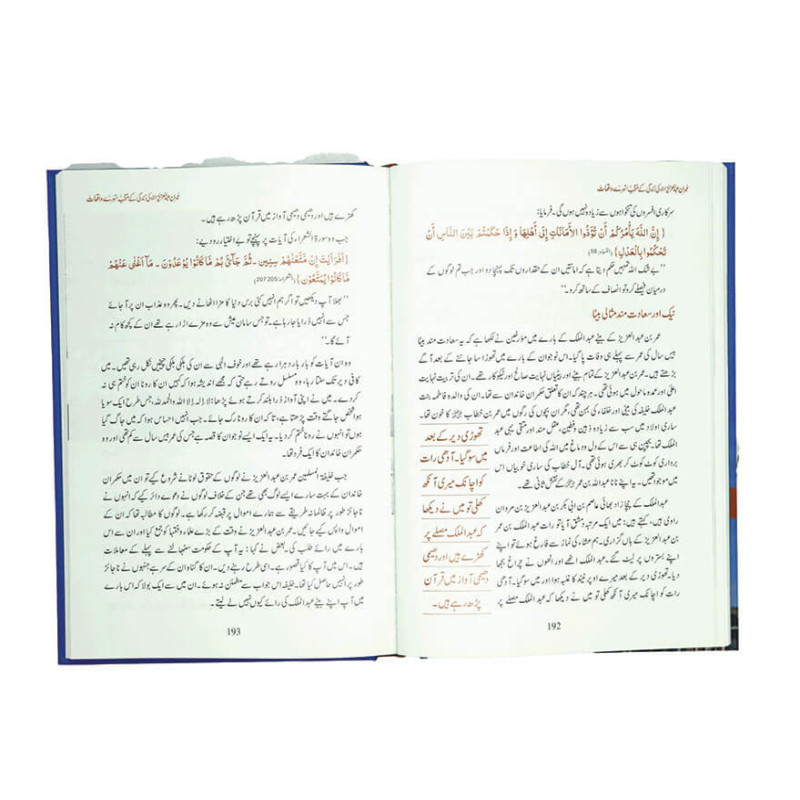 عمر بن عبدالعزیز کی زندگی کے منتخب سنہرے واقعات
سرکاری افسروں کی تنخواہوں سے زیادہ نہیں ہوں گی۔ فرمایا:
{ إِنَّ اللَّهَ يَأْمُرُكُمْ أَن تُؤَدُّوا الْأَمَانَاتِ إِلَىٰ أَهْلِهَا وَإِذَا حَكَمْتُم بَيْنَ النَّاسِ أَن
تَحْكُمُوا بِالْعَدْلِ } (النساء: 58)
”بے شک اللہ تمہیں حکم دیتا ہے کہ امانتیں ان کے حقداروں تک پہنچا دو اور جب تم لوگوں کے
درمیان فیصلے کرو تو انصاف کے ساتھ کرو۔“
نیک اور سعادت مند مثالی بیٹا
عمر بن عبدالعزیز کے بیٹے عبدالملک کے بارے میں مؤرخین نے لکھا ہے کہ یہ سعادت مند بیٹا
بیس سال کی عمر سے پہلے ہی وفات پا گیا۔ اس نوجوان کے بارے میں تھوڑا سا جاننے کے بعد آگے
بڑھتے ہیں۔ عمر بن عبدالعزیز کے تمام بیٹے اور بیٹیاں نہایت صالح اور نیکوکار تھے۔ ان کی تربیت نہایت
اعلیٰ اور عمدہ ماحول میں ہوئی تھی۔ ہر چند کہ ان کا تعلق حکمران خاندان سے تھا۔ ان کی والدہ فاطمہ بنت
عبدالملک خلیفہ کی بیٹی اور خلفاء کی بہن تھی، مگر ان بچوں کی رگوں میں عمر بن خطاب کا خون تھا۔
ساری اولاد میں سب سے زیادہ ذہین وفطین، عقل مند اور متقی یہی عبد
الملک تھا۔ بچپن ہی سے اس کے دل ودماغ میں اللہ کی اطاعت اور فرماں
برداری کوٹ کوٹ کر بھری ہوئی تھی۔ آل خطاب کی ساری خوبیاں اس
میں موجود تھیں۔ یہ اپنے نانا عبداللہ بن عمر کے نقش ثانی تھے۔
عبدالملک کے چچا زاد بھائی عاصم بن ابی بکر بن عبدالعزیز بن مروان
راوی ہیں، کہتے ہیں: میں ایک مرتبہ دمشق آیا تو رات عبدالملک بن عمر
بن عبدالعزیز کے ہاں گزاری۔ ہم عشاء کی نماز سے فارغ ہوئے تو اپنے
اپنے بستروں پر لیٹ گئے۔ عبدالملک اٹھے اور انھوں نے چراغ بجھا
دیا۔ تھوڑی دیر کے بعد میرے اوپر نیند کا غلبہ ہوا اور میں سو گیا۔ آدھی
رات کو اچانک میری آنکھ کھلی تو میں نے دیکھا کہ عبدالملک مصلے پر
تھوڑی دیر کے بعد
میں سو گیا۔ آدھی رات
کو اچانک میری آنکھ
کھلی تو میں نے دیکھا
کہ عبدالملک مصلے پر
کھڑے ہیں اور دھیمی
دھیمی آواز میں قرآن
پڑھ رہے ہیں۔
192
عمر بن عبدالعزیز کی زندگی کے منتخب سنہرے واقعات
کھڑے ہیں اور دھیمی دھیمی آواز میں قرآن پڑھ رہے ہیں۔
جب وہ سورۃ الشعراء کی آیات پر پہنچے تو بے اختیار رو دیے:
{أَفَرَأَيْتَ إِن مَّتَّعْنَاهُمْ سِنِينَ ۔ ثُمَّ جَاءَهُم مَّا كَانُوا يُوعَدُونَ ۔ مَا أَغْنَىٰ عَنْهُم
مَّا كَانُوا يُمَتَّعُونَ} (الشعراء: 205-207)
”بھلا آپ دیکھیں تو اگر ہم انہیں کئی برس دنیا کا مزا اٹھانے دیں۔ پھر وہ عذاب ان پر آجائے
جس سے انہیں ڈرایا جا رہا ہے۔ تو جس سامان عیش سے وہ مزے اڑا رہے تھے ان کے کچھ کام نہ
آئے گا۔“
وہ ان آیات کو بار بار دہرا رہے تھے اور خوف الٰہی سے ان کی ہلکی ہلکی چیخیں نکل رہی تھیں۔ میں
کافی دیر تک سنتا رہا، وہ مسلسل روتے رہے حتی کہ مجھے اندیشہ ہوا کہ کہیں ان کا رونا ان کو ختم ہی نہ
کر دے۔ میں نے اپنی آواز ذرا بلند کرتے ہوئے پڑھا: لا الہ الا اللہ والحمد للہ، جس طرح ایک سویا
ہوا شخص جاگتے وقت پڑھتا ہے، تاکہ ان کا رونا رک جائے۔ جب انہیں احساس ہوا کہ میں جاگ گیا
ہوں تو انہوں نے رونا ختم کر دیا۔ یہ ایک ایسے نوجوان کا قصہ ہے جس کی عمر بیس سال سے کم تھی اور وہ
حکمران خاندان کا فرد تھا۔
جب خلیفۃ المسلمین عمر بن عبدالعزیز نے لوگوں کے حقوق لوٹانے شروع کیے تو ان میں حکمران
خاندان کے بہت سارے ایسے لوگ بھی تھے جن کے خلاف لوگوں نے دعوے دائر کیے کہ انہوں نے
ناجائز طور پر ظالمانہ طریقے سے ہمارے اموال پر قبضہ کر رکھا ہے۔ لوگوں کا مطالبہ تھا کہ ان کے
اموال واپس کیے جائیں۔ عمر بن عبدالعزیز نے وقت کے بڑے علماء وفقہا کو جمع کیا اور ان سے اس
بارے میں رائے طلب کی۔ بعض نے کہا: یہ آپ کے حکومت سنبھالنے سے پہلے کے معاملات
ہیں۔ اس میں آپ کا کیا قصور ہے۔ اسی طرح رہنے دیں۔ ان کا گناہ ان کے سر ہے جنہوں نے ناجائز
طور پر انہیں حاصل کیا تھا۔ خلیفہ اس جواب سے مطمئن نہ ہوئے۔ ان میں سے ایک بولا کہ اس بارے
میں آپ اپنے بیٹے عبدالملک کی رائے کیوں نہیں لے لیتے۔
193